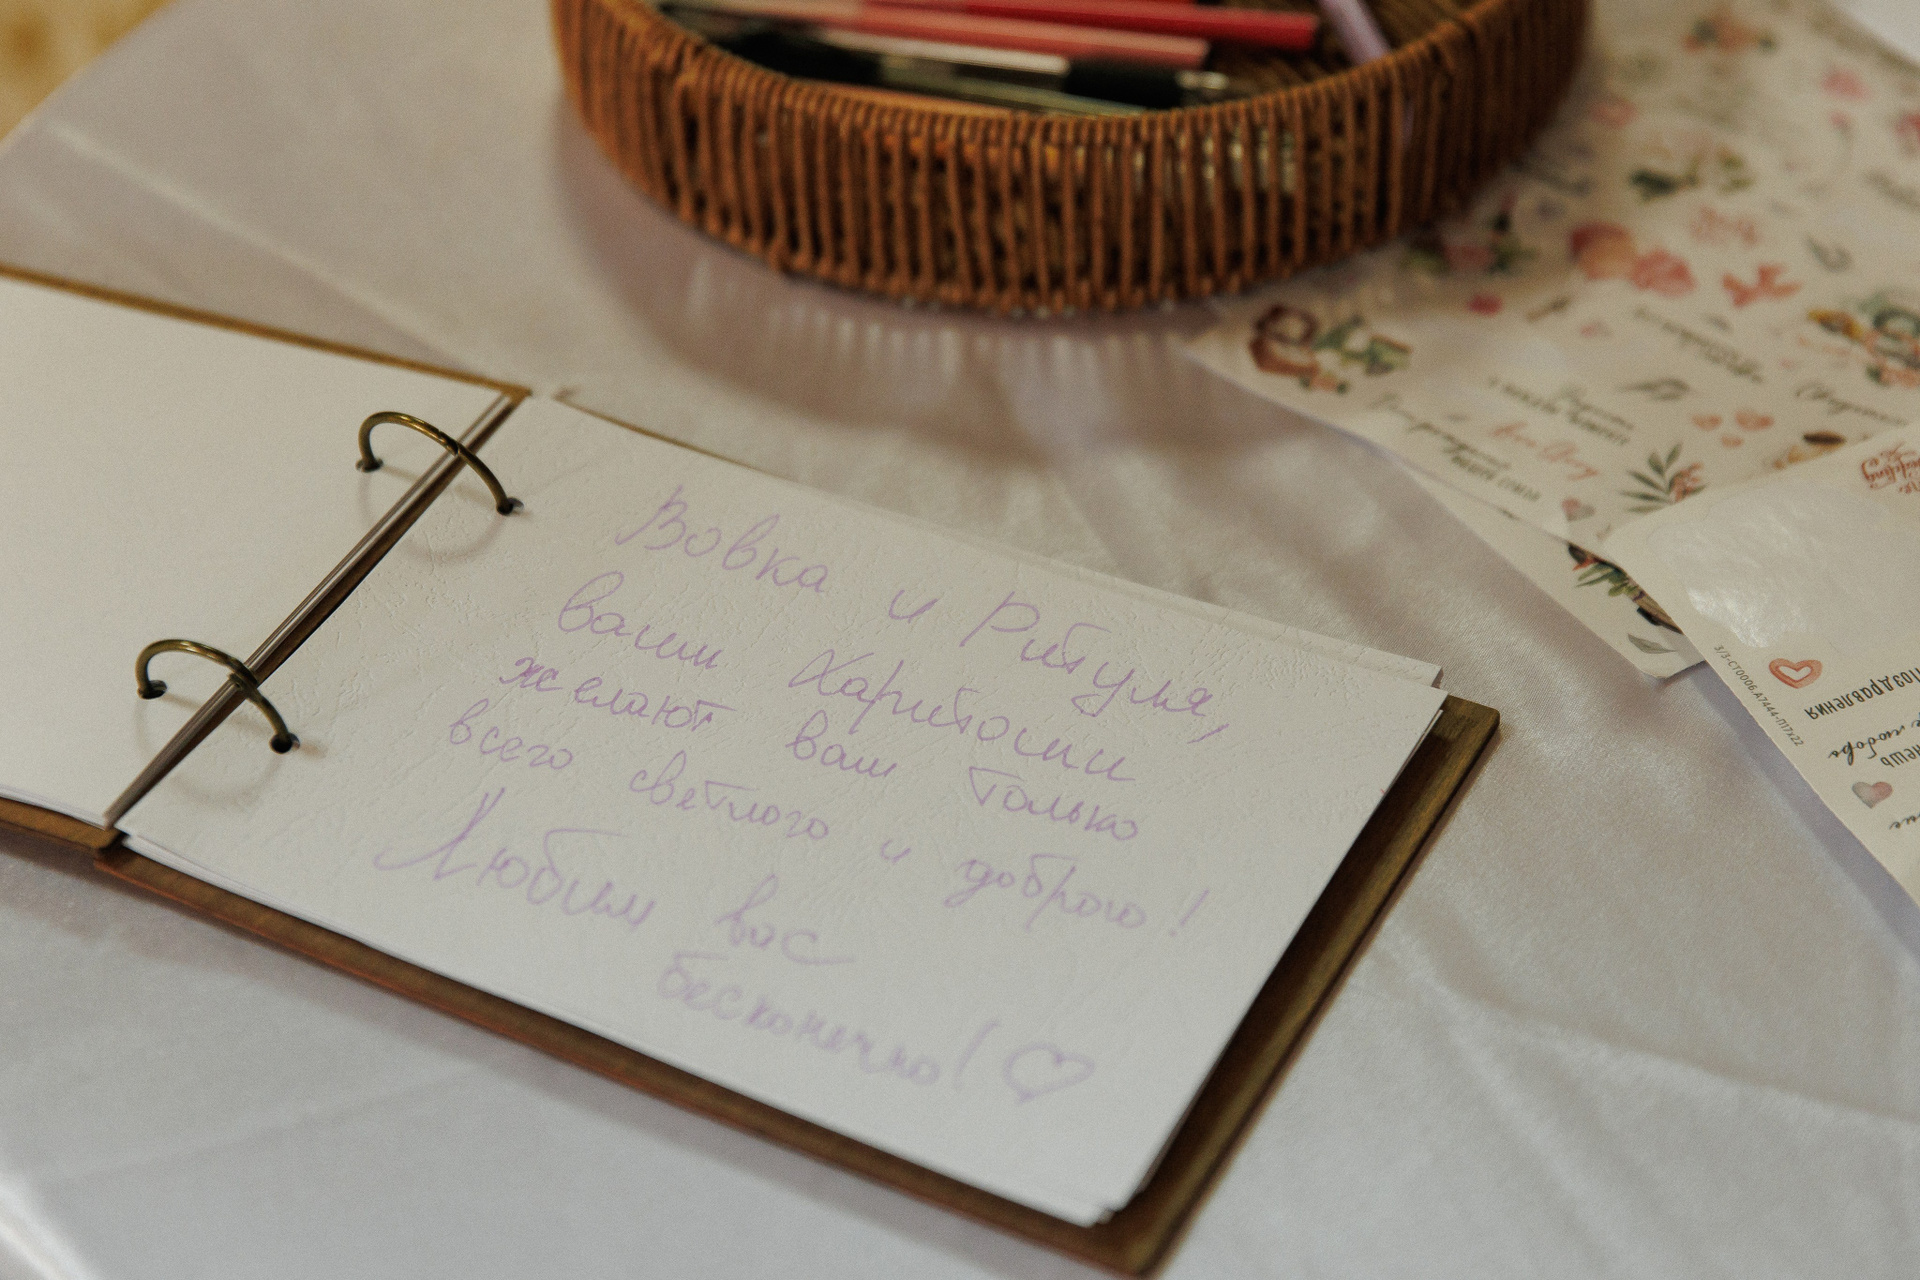 Вовка и Ритуля,
ваши Харитоши
желают вам только
всего светлого и доброго!
Любим вас
бесконечно!
3/3-СТ0006.А7444-П17х22
Поздравления
любовь